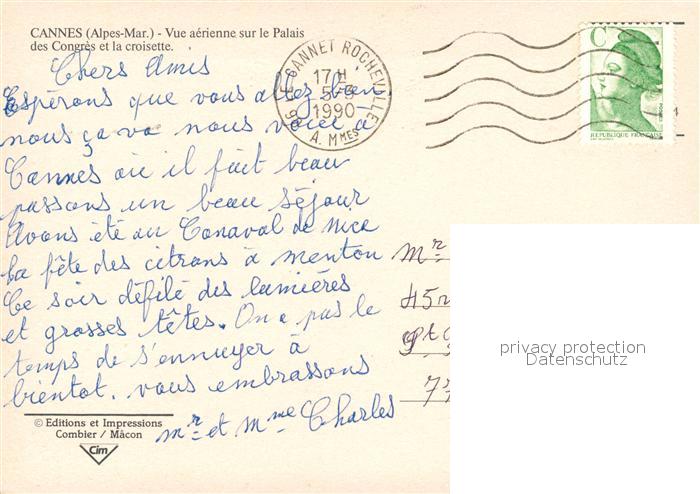 CANNES (Alpes-Mar.) - Vue aérienne sur le Palais
des Congrès et la croisette.
LE CANNET ROCHEVILLE
17 H
5-3
1990
06 A. MMES
C
REPUBLIQUE FRANÇAISE
Chers Amis
Espérons que vous allez bien
nous ça va nous voici à
Cannes où il fait beau
passons un beau séjour
Avons été au Canaval de Nice
La fête des citrons à Menton
Ce soir défilé des lumières
et grosses têtes. On a pas le
temps de s'ennuyer à
bientot. vous embrassons
Mr et Mme Charles
Mr
45
privacy protection
Datenschutz
© Editions et Impressions
Combier / Mâcon
Cim